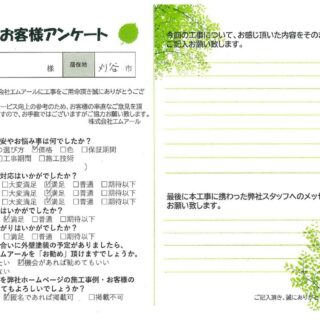 お客様アンケート
様 居住地 刈谷 市
会社エムアールに工事をご用命頂き誠にありがとうござ
ービス向上の参考のため、お客様の率直なご意見を頂
すので、お手数ではございますがご協力お願い致します。
株式会社エムアール
安やお悩み事は何でしたか?
の選び方 ☑価格 □色 □保証期間
□工事期間 □施工技術
)
対応はいかがでしたか?
□大変満足 ☑満足 □普通 □期待以下
□大変満足 ☑満足 □普通 □期待以下
□大変満足 ☑満足 □普通 □期待以下
はいかがでしたか?
☑満足 □普通 □期待以下
はいかがでしたか?
☑満足 □普通 □期待以下
合いに外壁塗装の予定がありましたら、
ムアールを「お勧め」頂けますでしょうか。
たい ☑機会があれば勧めてもいい
ない
を弊社ホームページの施工事例・お客様の
てもよろしいでしょうか?
☑匿名であれば掲載可 □掲載不可
今回の工事について、お感じ頂いた内容をその
ご記入お願い致します。
最後に本工事に携わった弊社スタッフへのメッセ
お願い致します。
ご記入頂き、誠にありがと